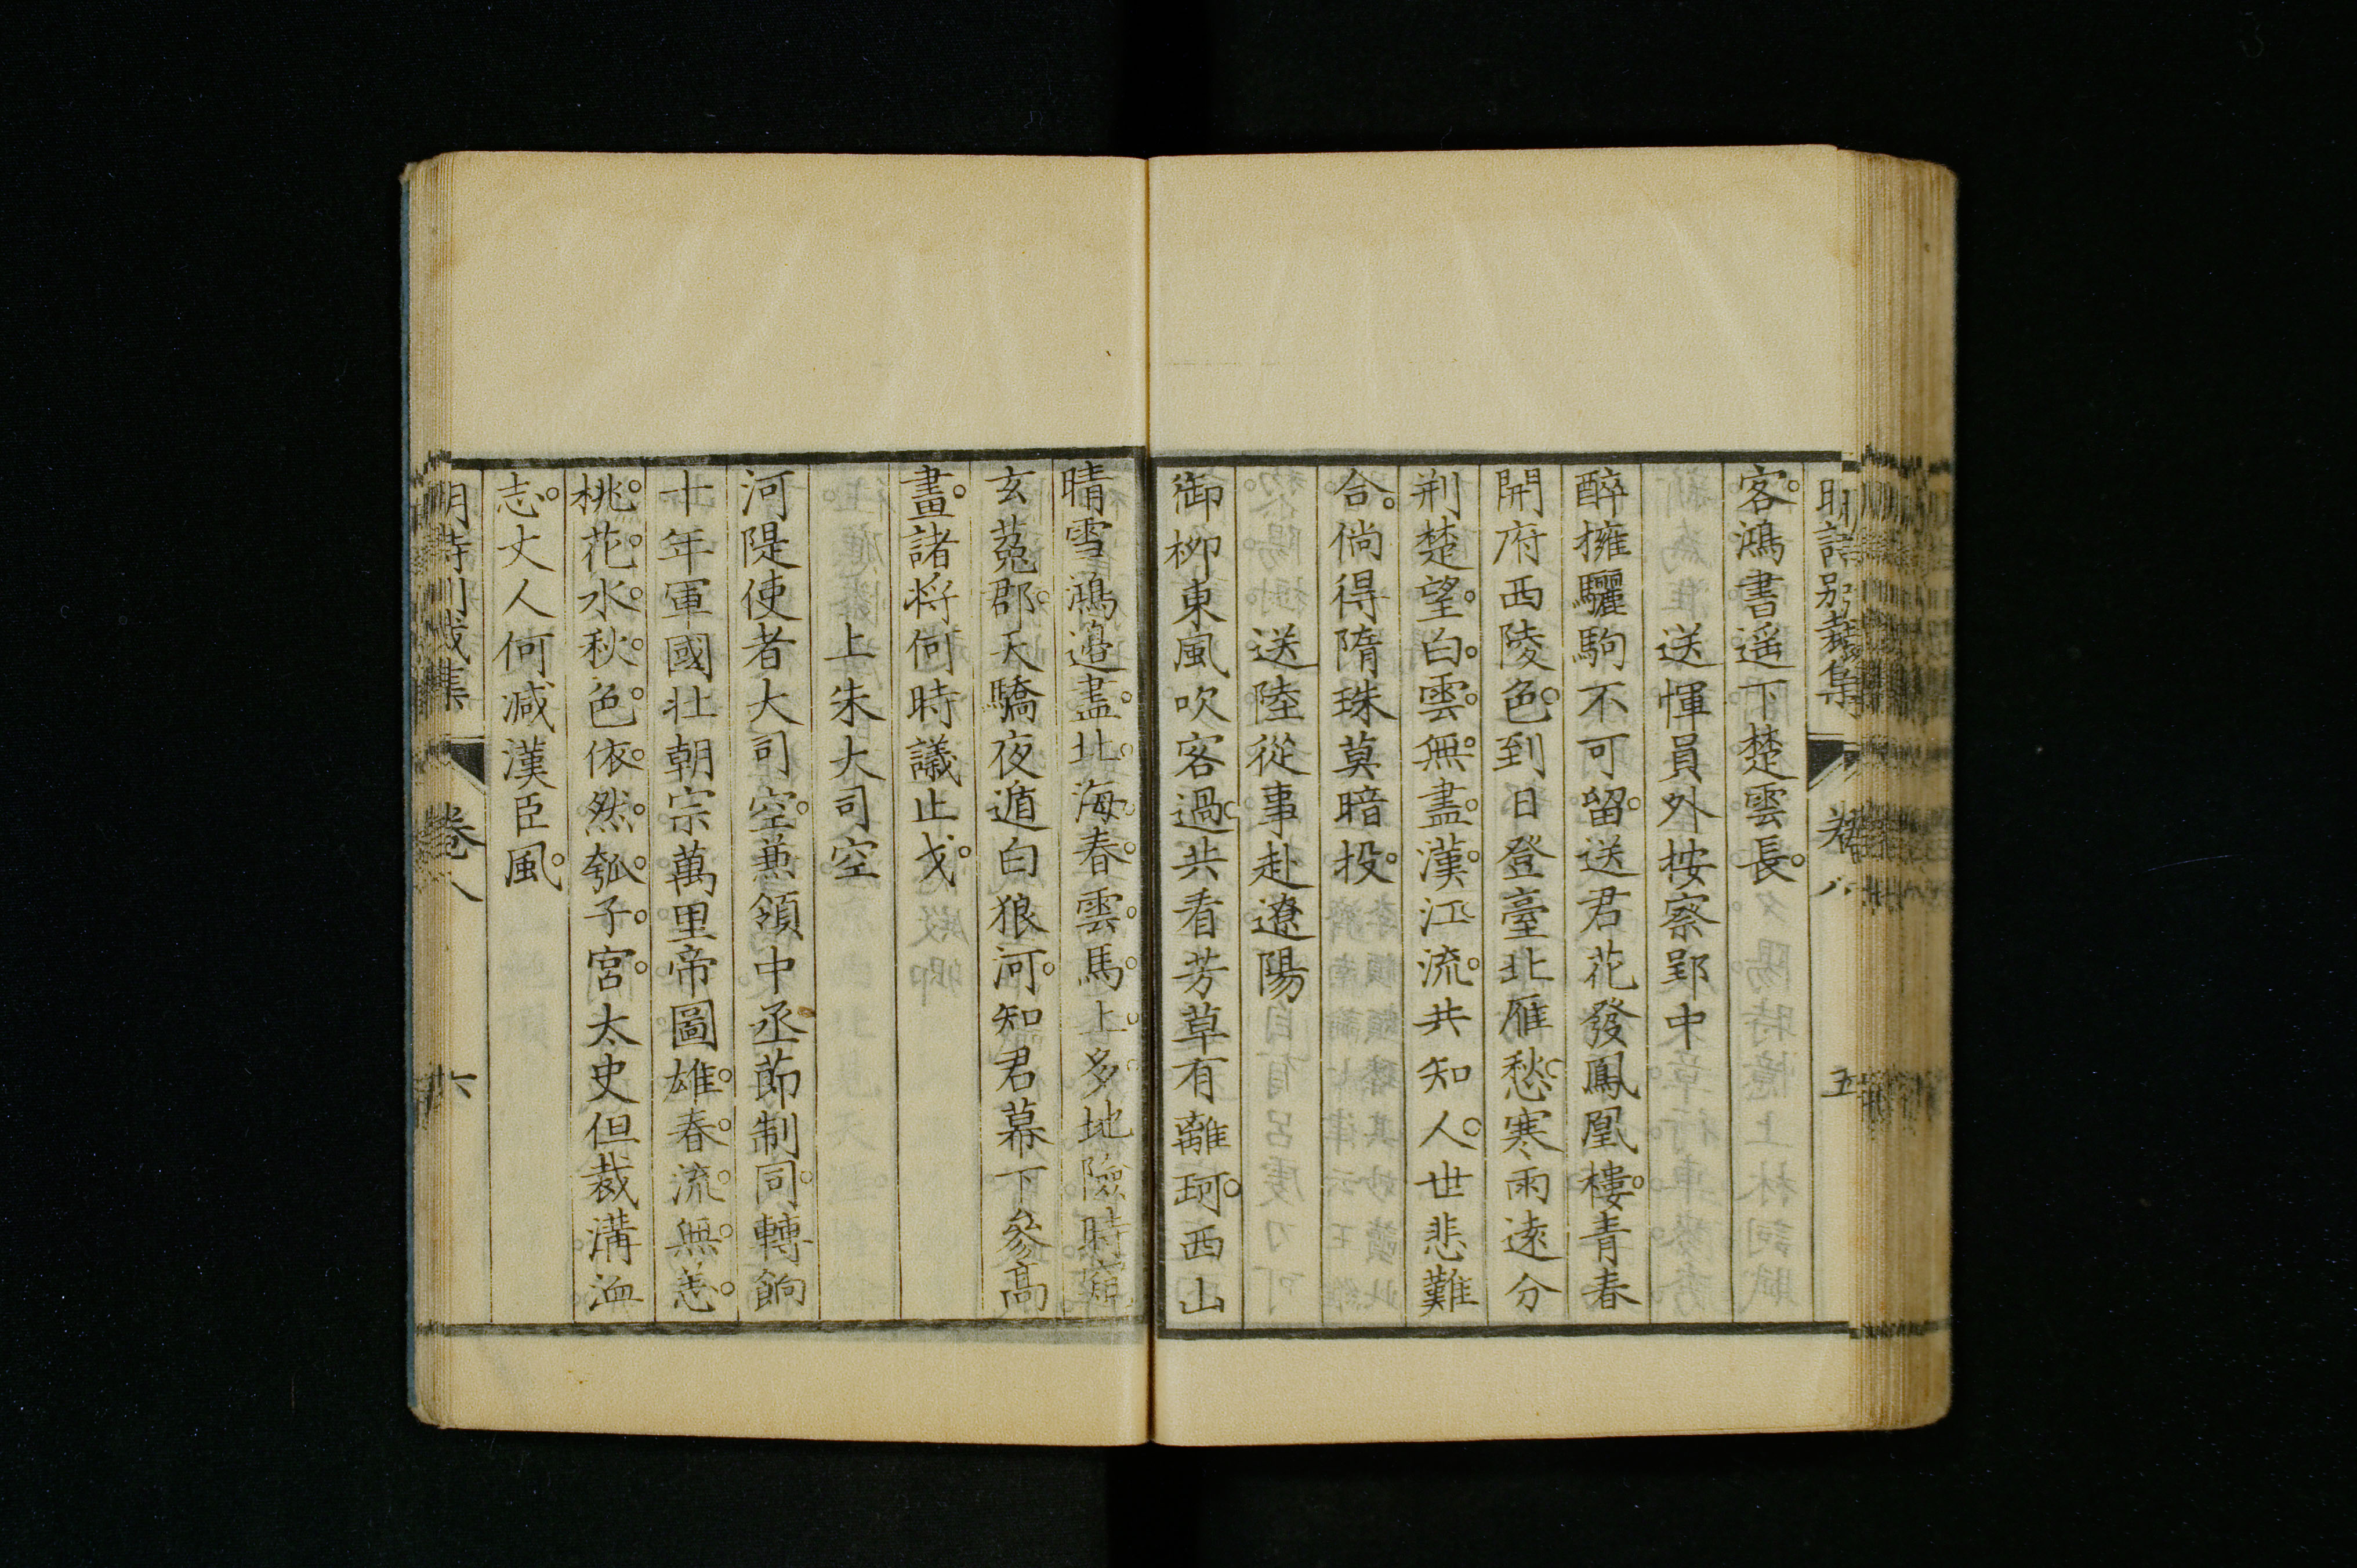 明詩別裁集 卷八 五
客。鴻書遥下楚雲長。
送惲員外按察郢中
醉擁驪駒不可留。送君花發鳳凰樓。青春
開府西陵色。到日登臺北雁愁。寒雨遠分
荆楚望。白。雲。無。盡。漢。江流。共知人。世悲難
合。倘得隋珠莫暗投。
送陸從事赴遼陽
御柳東風吹客過。共看芳草有離珂。西山
晴雪鴻邉盡。北。海。春。雲。馬。上。多。地險時窺
玄菟郡。天驕夜遁白狼河。知君幕下參高
畫。諸將何時議止戈。
上朱大司空
河隄使者大司空。兼領中丞節制同。轉餉
十年軍國壯。朝宗萬里帝圖雄。春。流。無。恙。
桃。花。水。秋。色。依。然。瓠。子。宮。太史但裁溝洫
志。丈人何減漢臣風。
明詩別裁集 卷八 六